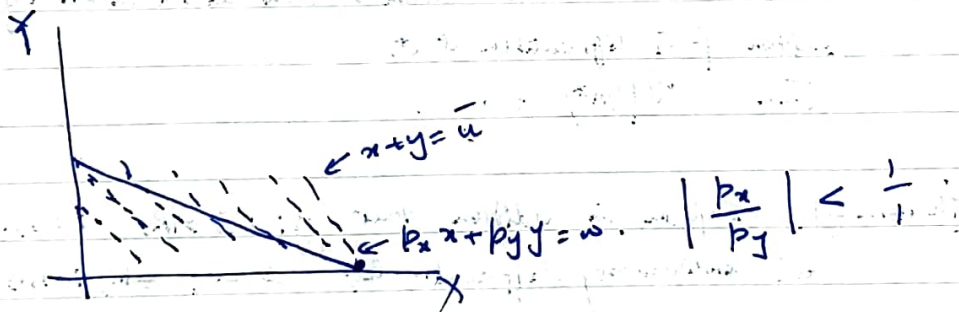 Y
x+y= ū
pₓ x + p_y y = w. |pₓ/p_y| < 1/1
X